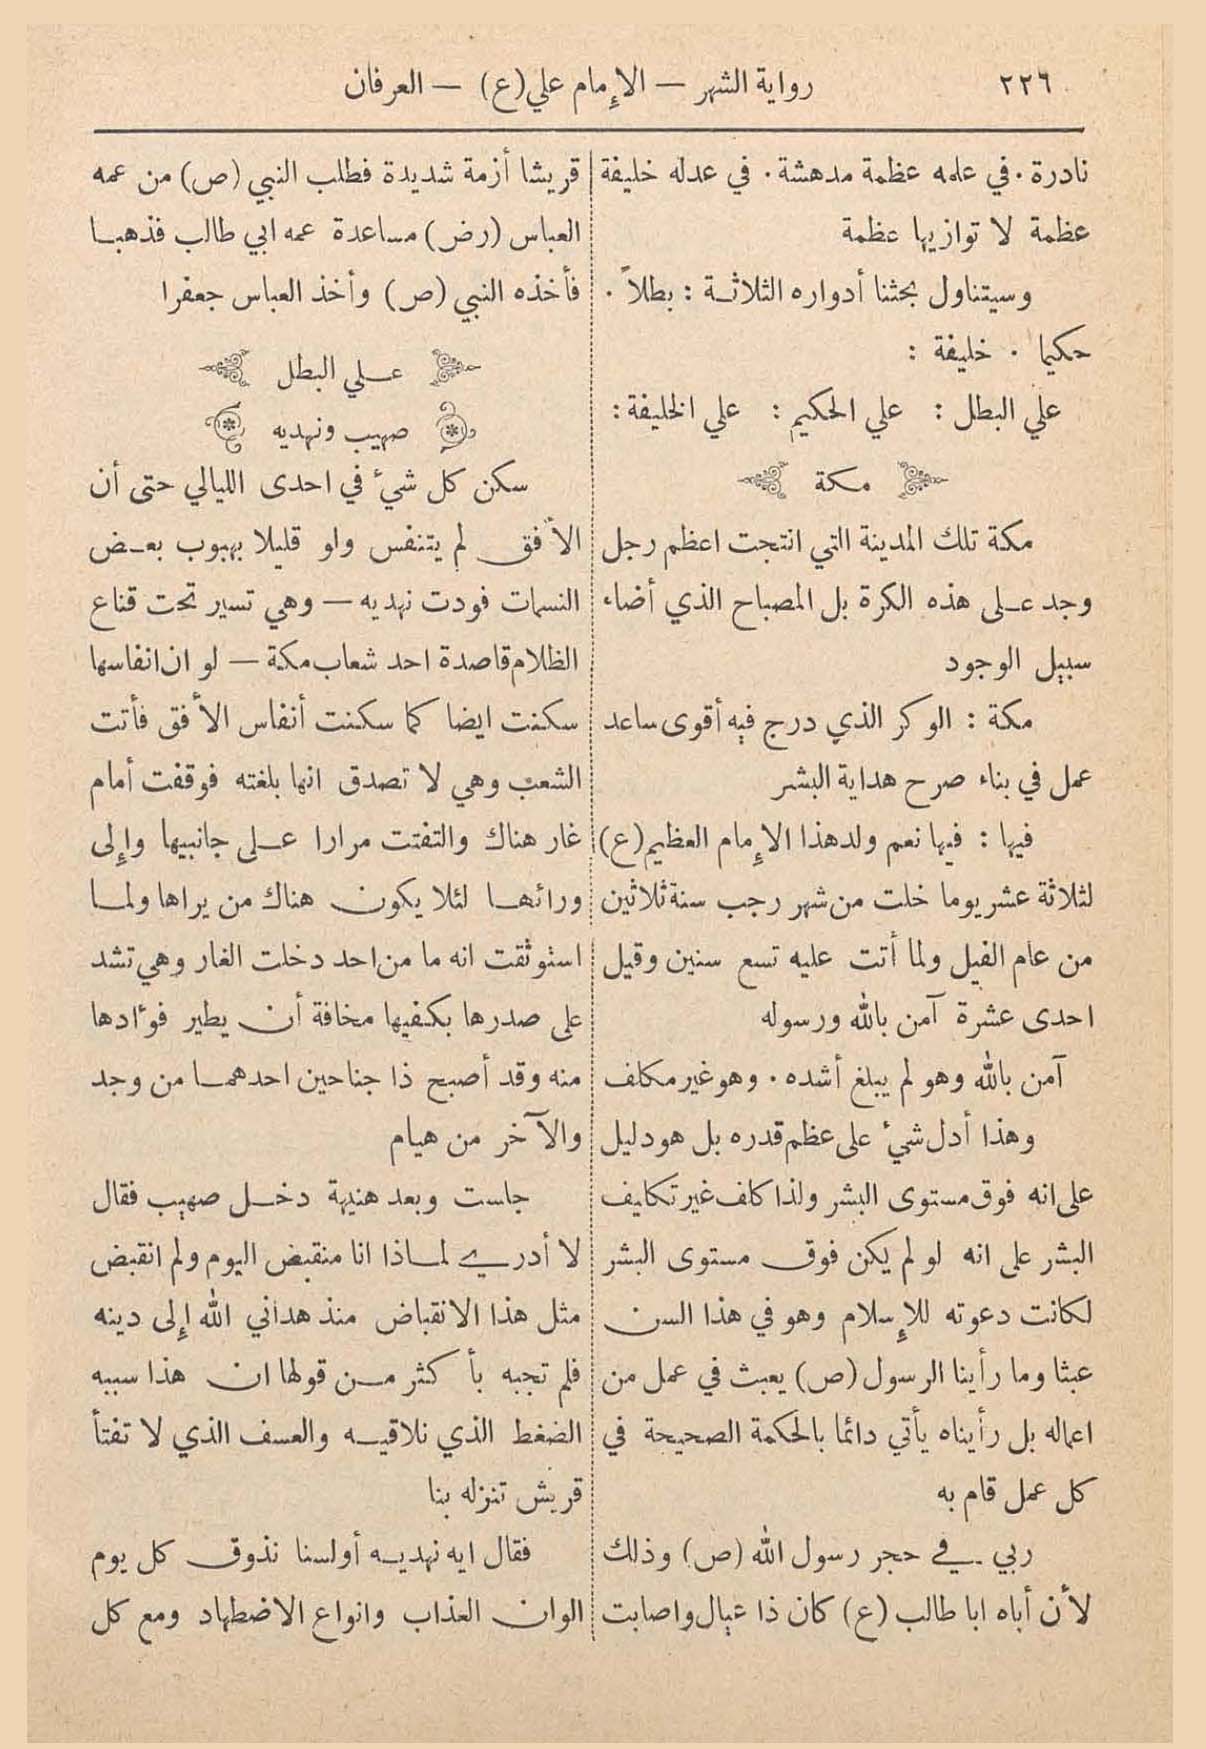 ٢٢٦ رواية الشهر — الإمام علي (ع) — العرفان
نادرة . في علمه عظمة مدهشة . في عدله خليفة
عظمة لا توازيها عظمة
وسيتناول بحثنا أدواره الثلاثة : بطلاً .
حكيما . خليفة :
علي البطل : علي الحكيم : علي الخليفة :
مكة
مكة تلك المدينة التي انتجت اعظم رجل
وجد على هذه الكرة بل المصباح الذي أضاء
سبيل الوجود
مكة : الوكر الذي درج فيه أقوى ساعد
عمل في بناء صرح هداية البشر
فيها : فيها نعم ولد هذا الإمام العظيم (ع)
لثلاثة عشر يوما خلت من شهر رجب سنة ثلاثين
من عام الفيل ولما أتت عليه تسع سنين وقيل
احدى عشرة آمن بالله ورسوله
آمن بالله وهو لم يبلغ أشده . وهو غير مكلف
وهذا أدل شيء على عظم قدره بل هو دليل
على انه فوق مستوى البشر ولذا كلف غير تكليف
البشر على انه لو لم يكن فوق مستوى البشر
لكانت دعوته للإسلام وهو في هذا السن
عبثا وما رأينا الرسول (ص) يعبث في عمل من
اعماله بل رأيناه يأتي دائما بالحكمة الصحيحة في
كل عمل قام به
ربي في حجر رسول الله (ص) وذلك
لأن أباه ابا طالب (ع) كان ذا عيال واصابت
قريشا أزمة شديدة فطلب النبي (ص) من عمه
العباس (رض) مساعدة عمه ابي طالب فذهبا
فأخذه النبي (ص) وأخذ العباس جعفرا
علي البطل
صهيب ونهديه
سكن كل شيء في احدى الليالي حتى أن
الأفق لم يتنفس ولو قليلا بهبوب بعض
النسمات فودت نهديه — وهي تسير تحت قناع
الظلام قاصدة احد شعاب مكة — لو ان انفاسها
سكنت ايضا كما سكنت أنفاس الأفق فأتت
الشعب وهي لا تصدق انها بلغته فوقفت أمام
غار هناك والتفتت مرارا على جانبيها وإلى
ورائها لئلا يكون هناك من يراها ولما
استوثقت انه ما من احد دخلت الغار وهي تشد
على صدرها بكفيها مخافة أن يطير فوءادها
منه وقد أصبح ذا جناحين احدهما من وجد
والآخر من هيام
جلست وبعد هنيهة دخل صهيب فقال
لا أدري لماذا انا منقبض اليوم ولم انقبض
مثل هذا الانقباض منذ هداني الله إلى دينه
فلم تجبه بأكثر من قولها ان هذا سببه
الضغط الذي نلاقيه والعسف الذي لا تفتأ
قريش تنزله بنا
فقال ايه نهديه أولسنا نذوق كل يوم
الوان العذاب وانواع الاضطهاد ومع كل